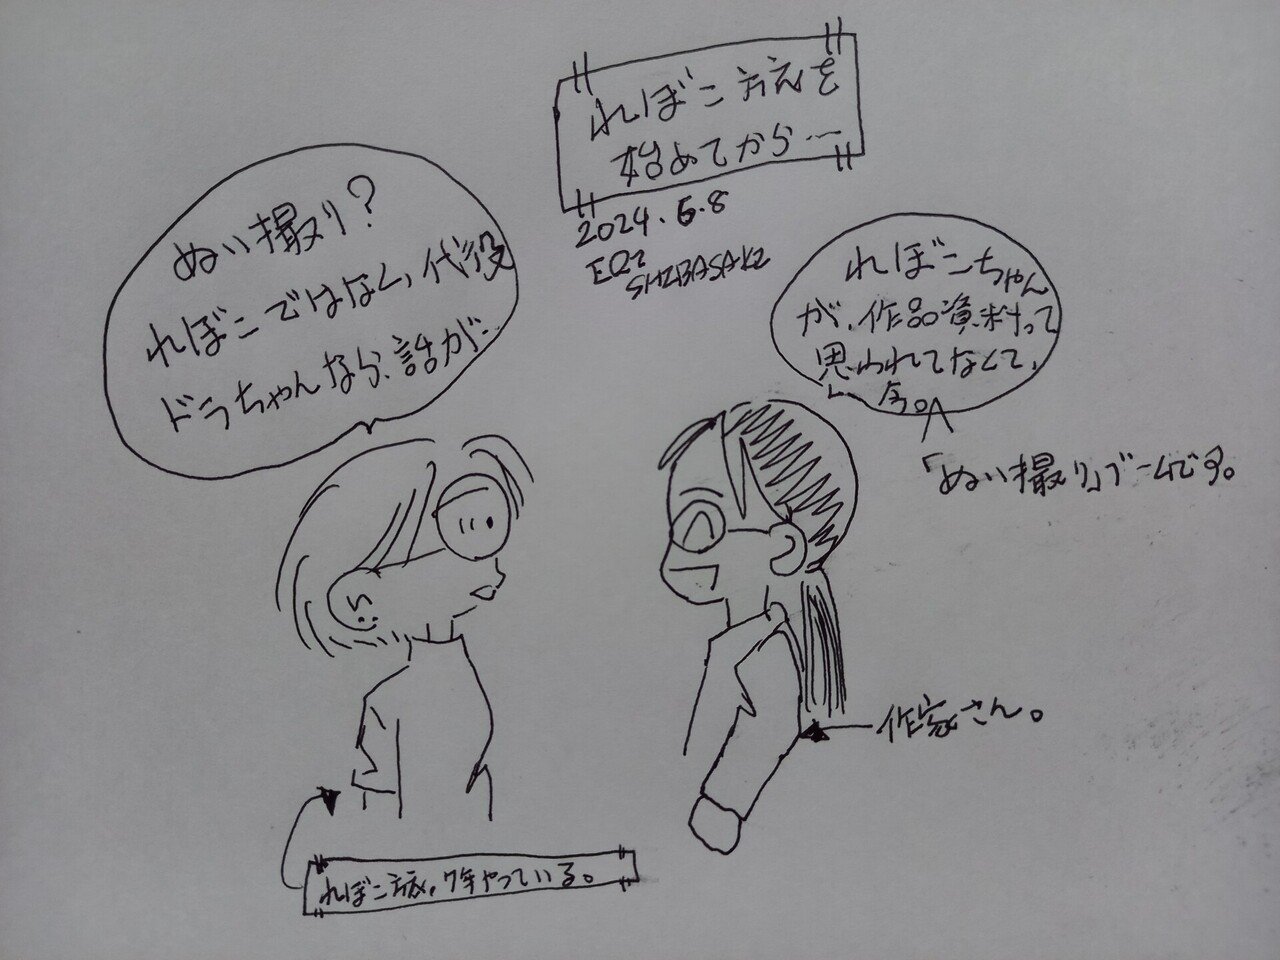 れぼこ旅を
始めてから…
2024.5.8
ERI
SHIBASAKI
ぬい撮り?
れぼこではなく、代役
ドラちゃんなら、話が…
れぼこちゃん
が、作品資料って
思われてなくて、
今。
「ぬい撮り」ブームです。
作家さん。
れぼこ旅、7年やっている。